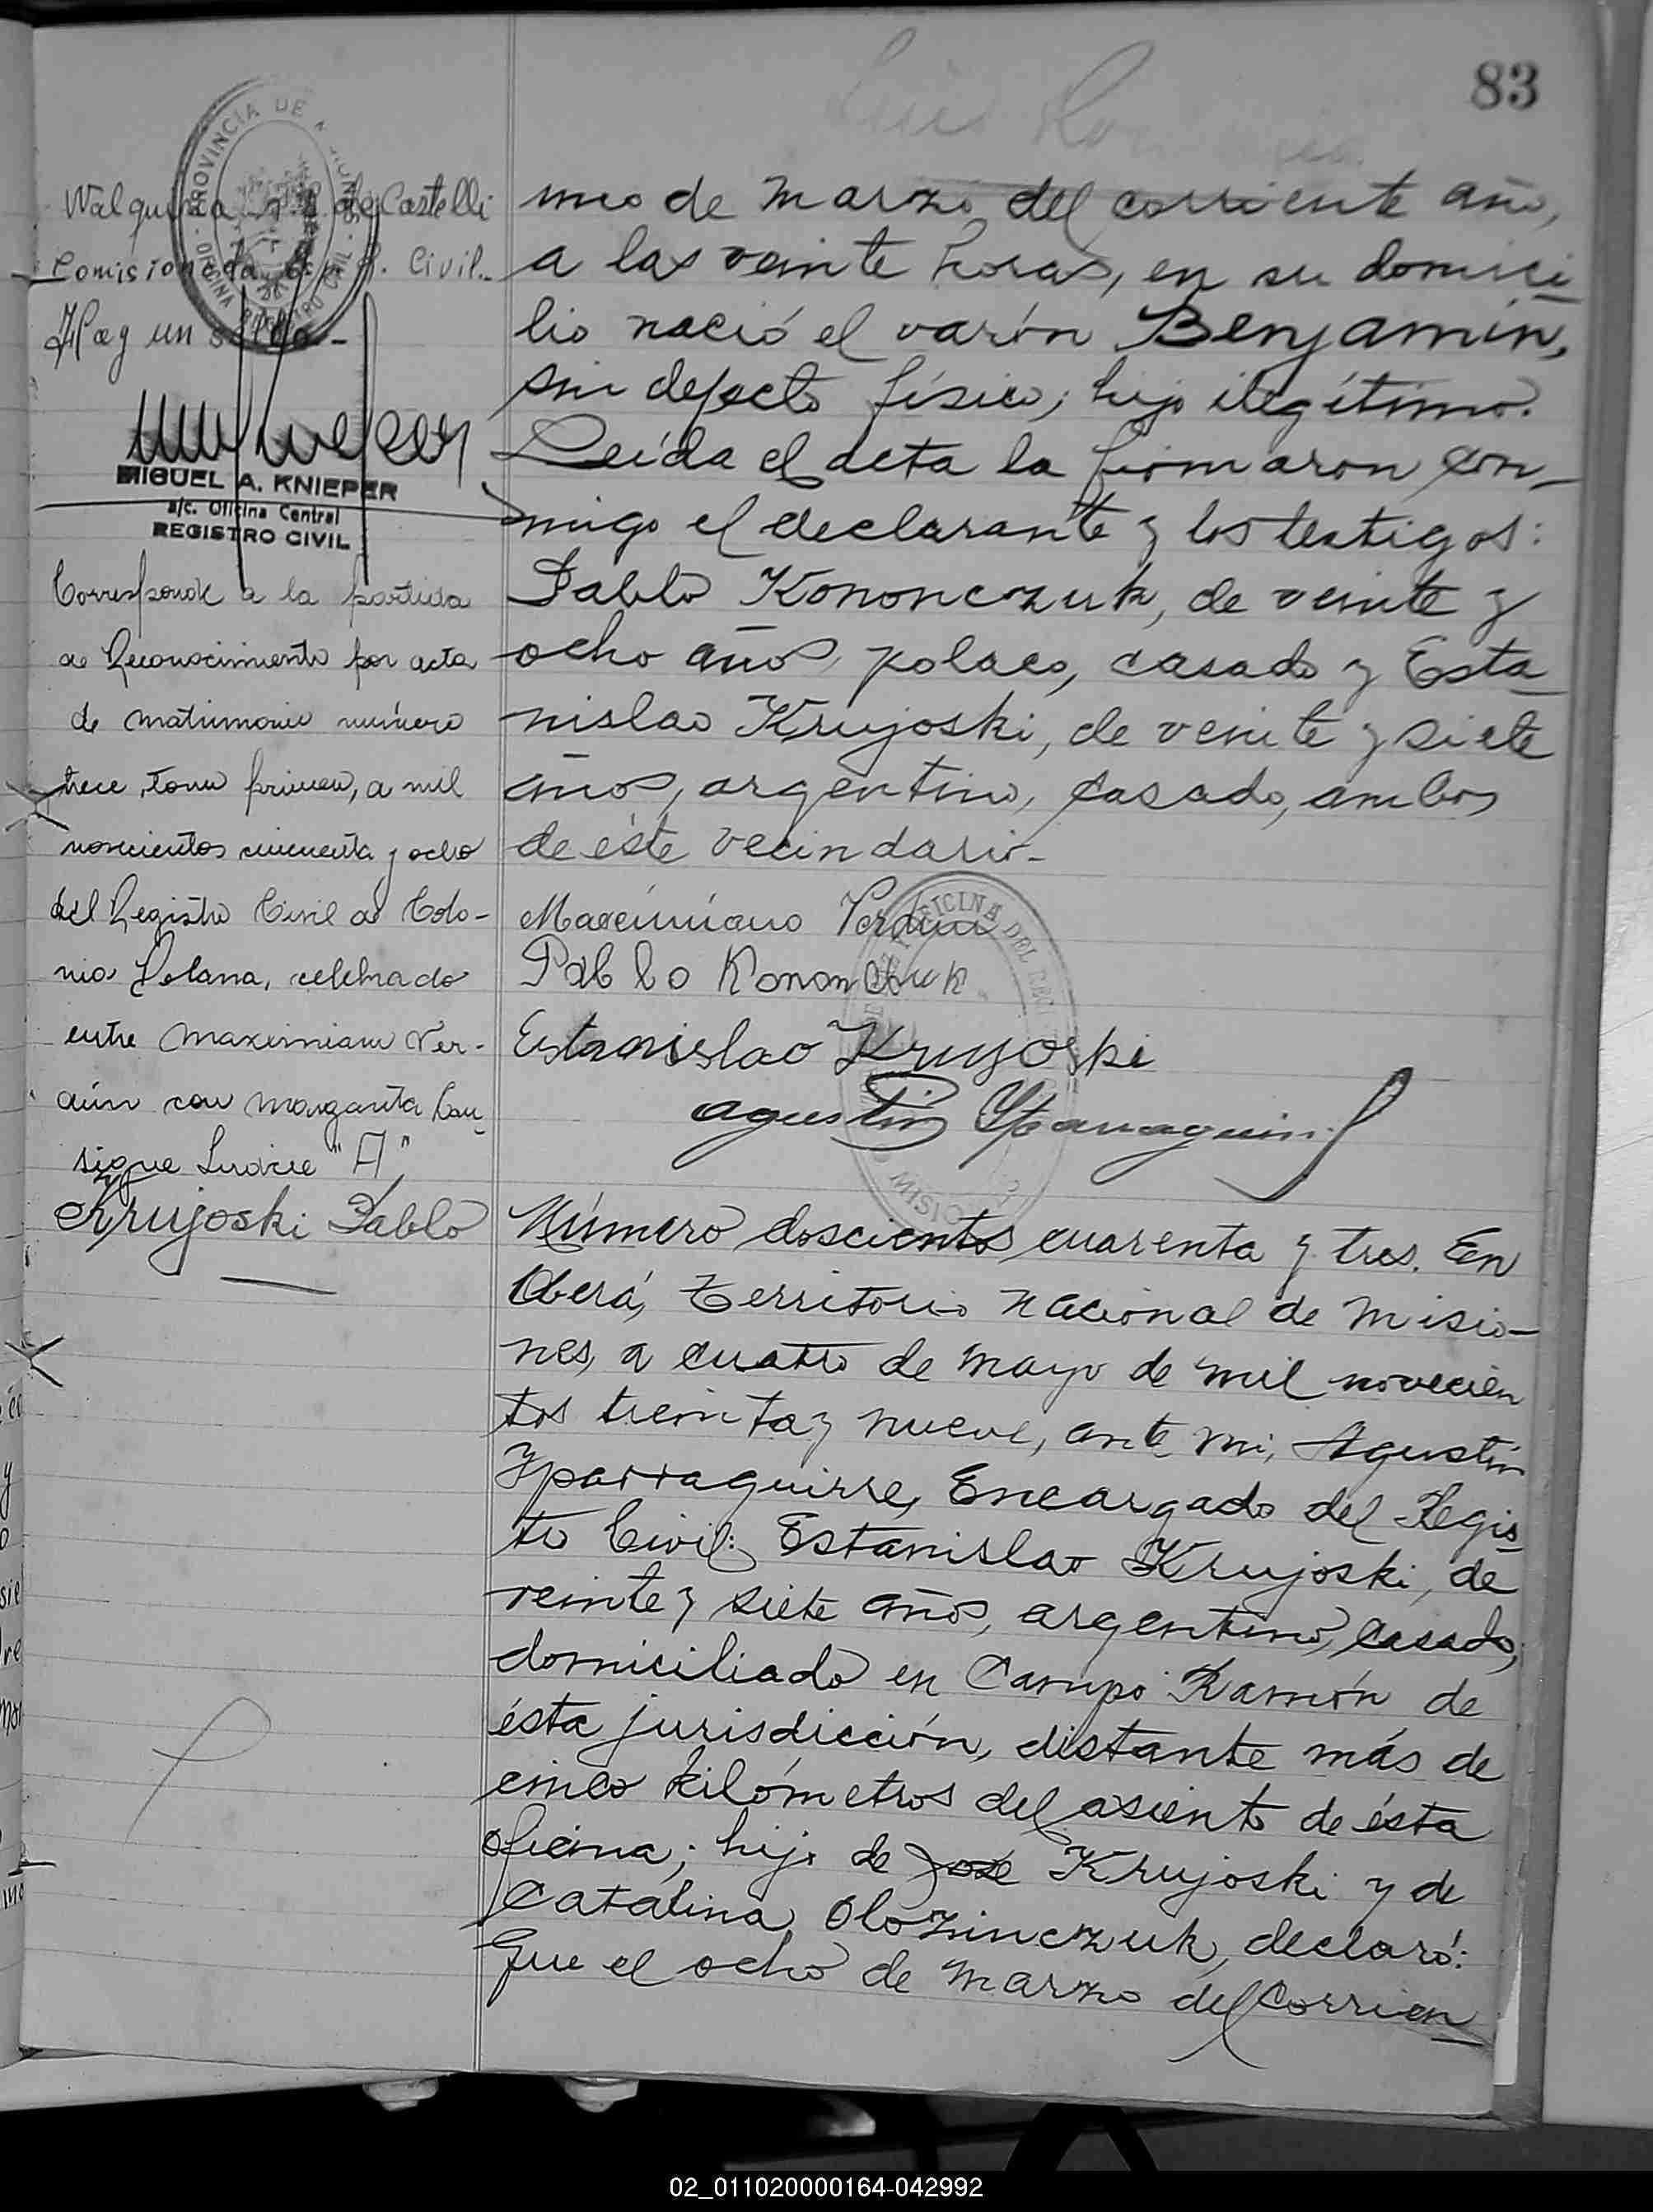 83
PROVINCIA DE
Walquiria de Castelli
Comisionada R. Civil.-
Hay un sello-
MIGUEL A. KNIEPER
a/c. Oficina Central
REGISTRO CIVIL
Corresponde a la partida
de Reconocimiento por acta
de matrimonio número
trece, tomo primero, a mil
novecientos cincuenta y ocho
del Registro Civil de Colo-
nia Polana, celebrado
entre Maximiano Ver-
dún con Margarita
sigue Indice "A"
Krujoski Pablo
mo de marzo del corriente año,
a las veinte horas, en su domici
lio nació el varón Benjamín,
sin defecto físico; hijo ilegítimo.
Leída el acta la firmaron con-
migo el declarante y los testigos:
Pablo Kononczuk, de veinte y
ocho años, polaco, casado y Esta-
nislao Krujoski, de veinte y siete
años, argentino, casado, ambos
de éste vecindario-
Maximiano Verdun
Pablo Kononchuk
Estanislao Krujoski
Agustin Yparraguirre
Número doscientos cuarenta y tres. En
Oberá, Territorio Nacional de Misio-
nes, a cuatro de mayo de mil novecien
tos treinta y nueve, ante mi, Agustín
Yparraguirre, Encargado del Regis
tro Civil: Estanislao Krujoski, de
veinte y siete años, argentino, casado,
domiciliado en Campo Ramón de
ésta jurisdicción, distante más de
cinco kilómetros del asiento de ésta
oficina; hijo de José Krujoski y de
Catalina Olozinczuk, declaró:
Que el ocho de marzo del corrien
02_011020000164-042992